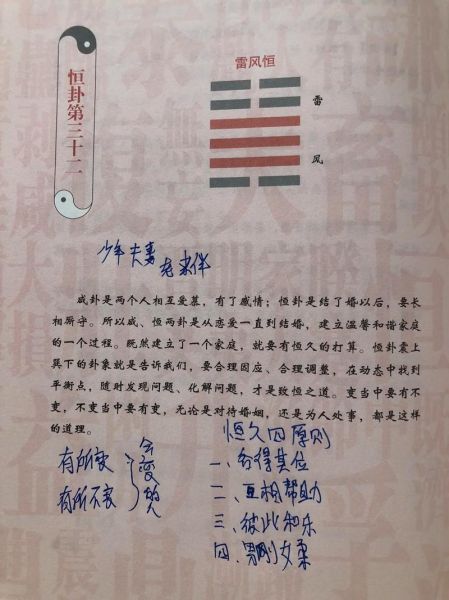 恒卦第三十二
雷风恒
雷
风
少年夫妻 老来伴
咸卦是两个人相互爱慕，有了感情；恒卦是结了婚以后，要长
相厮守。所以咸、恒两卦是从恋爱一直到结婚，建立温馨和谐家庭
的一个过程。既然建立了一个家庭，就要有恒久的打算。恒卦震上
巽下的卦象就是告诉我们，要合理因应、合理调整，在动态中找到
平衡点，随时发现问题、化解问题，才是致恒之道。变当中要有不
变，不变当中要有变，无论是对待婚姻，还是为人处事，都是这样
的道理。
有所变
有所不变
会变的人
恒久四原则
一、各得其位
二、互相帮助
三、彼此和乐
四、男刚女柔